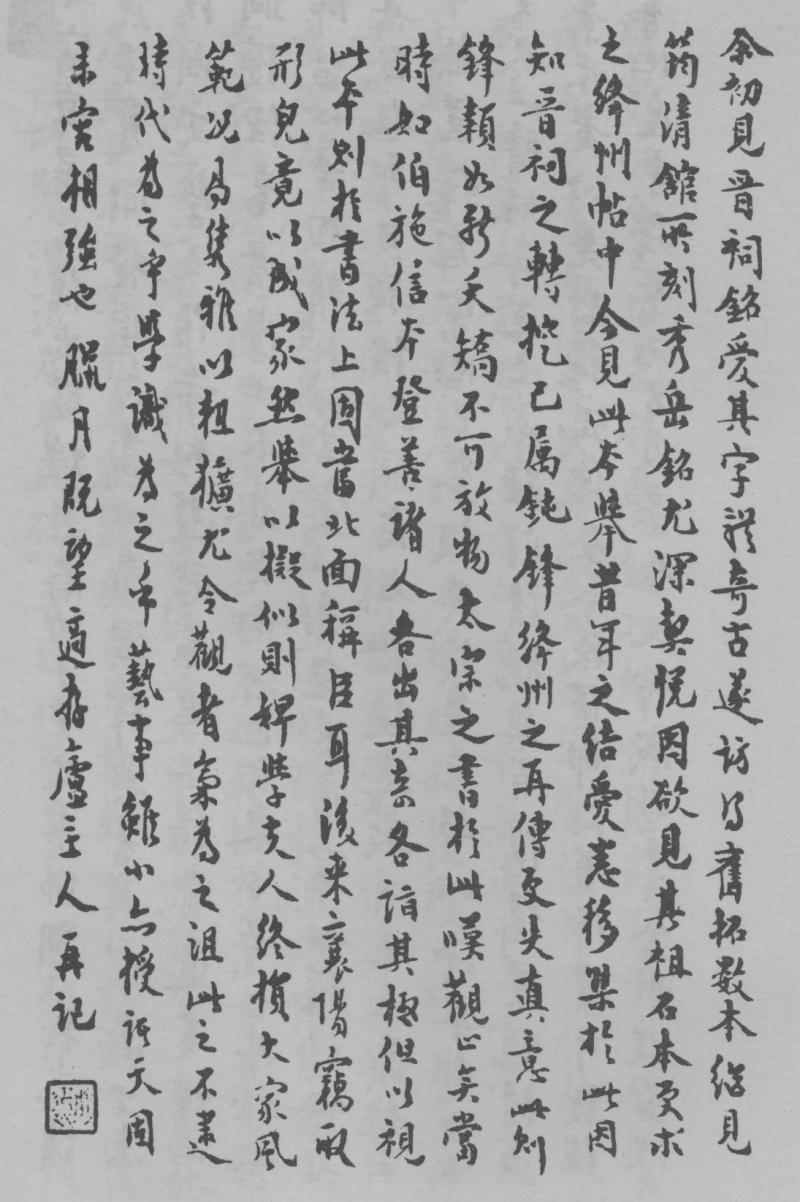 余初見晉祠銘愛其字體奇古遂訪得舊拓數本繼見
筠清館所刻秀岳銘尤深契悅因欲見其祖石本更求
之絳州帖中今見此本舉昔年之結愛悉移槩於此因
知晉祠之轉挖已屬鈍鋒絳州之再傳更失真意此則
鋒穎如新夭矯不可放物太宗之書於此嘆觀止矣當
時如伯施信本登善諸人各出其奇各詣其極但以視
此本則於書法上固當北面稱臣耳後來襄陽竊取
形皃竟以成家然舉以擬似則婢學夫人終損大家風
範況易雋雅以粗獷尤令觀者氣為之沮此之不逮
時代為之乎學識為之乎藝事雖小亦授諸天固
未容相強也臘月既望適存廬主人再記